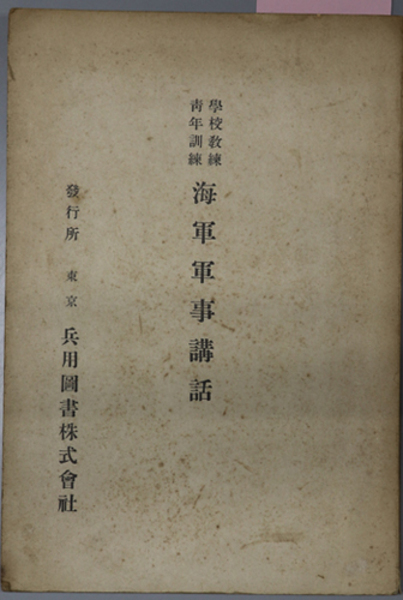 學校教練
靑年訓練
海軍軍事講話
發行所 東京 兵用圖書株式會社